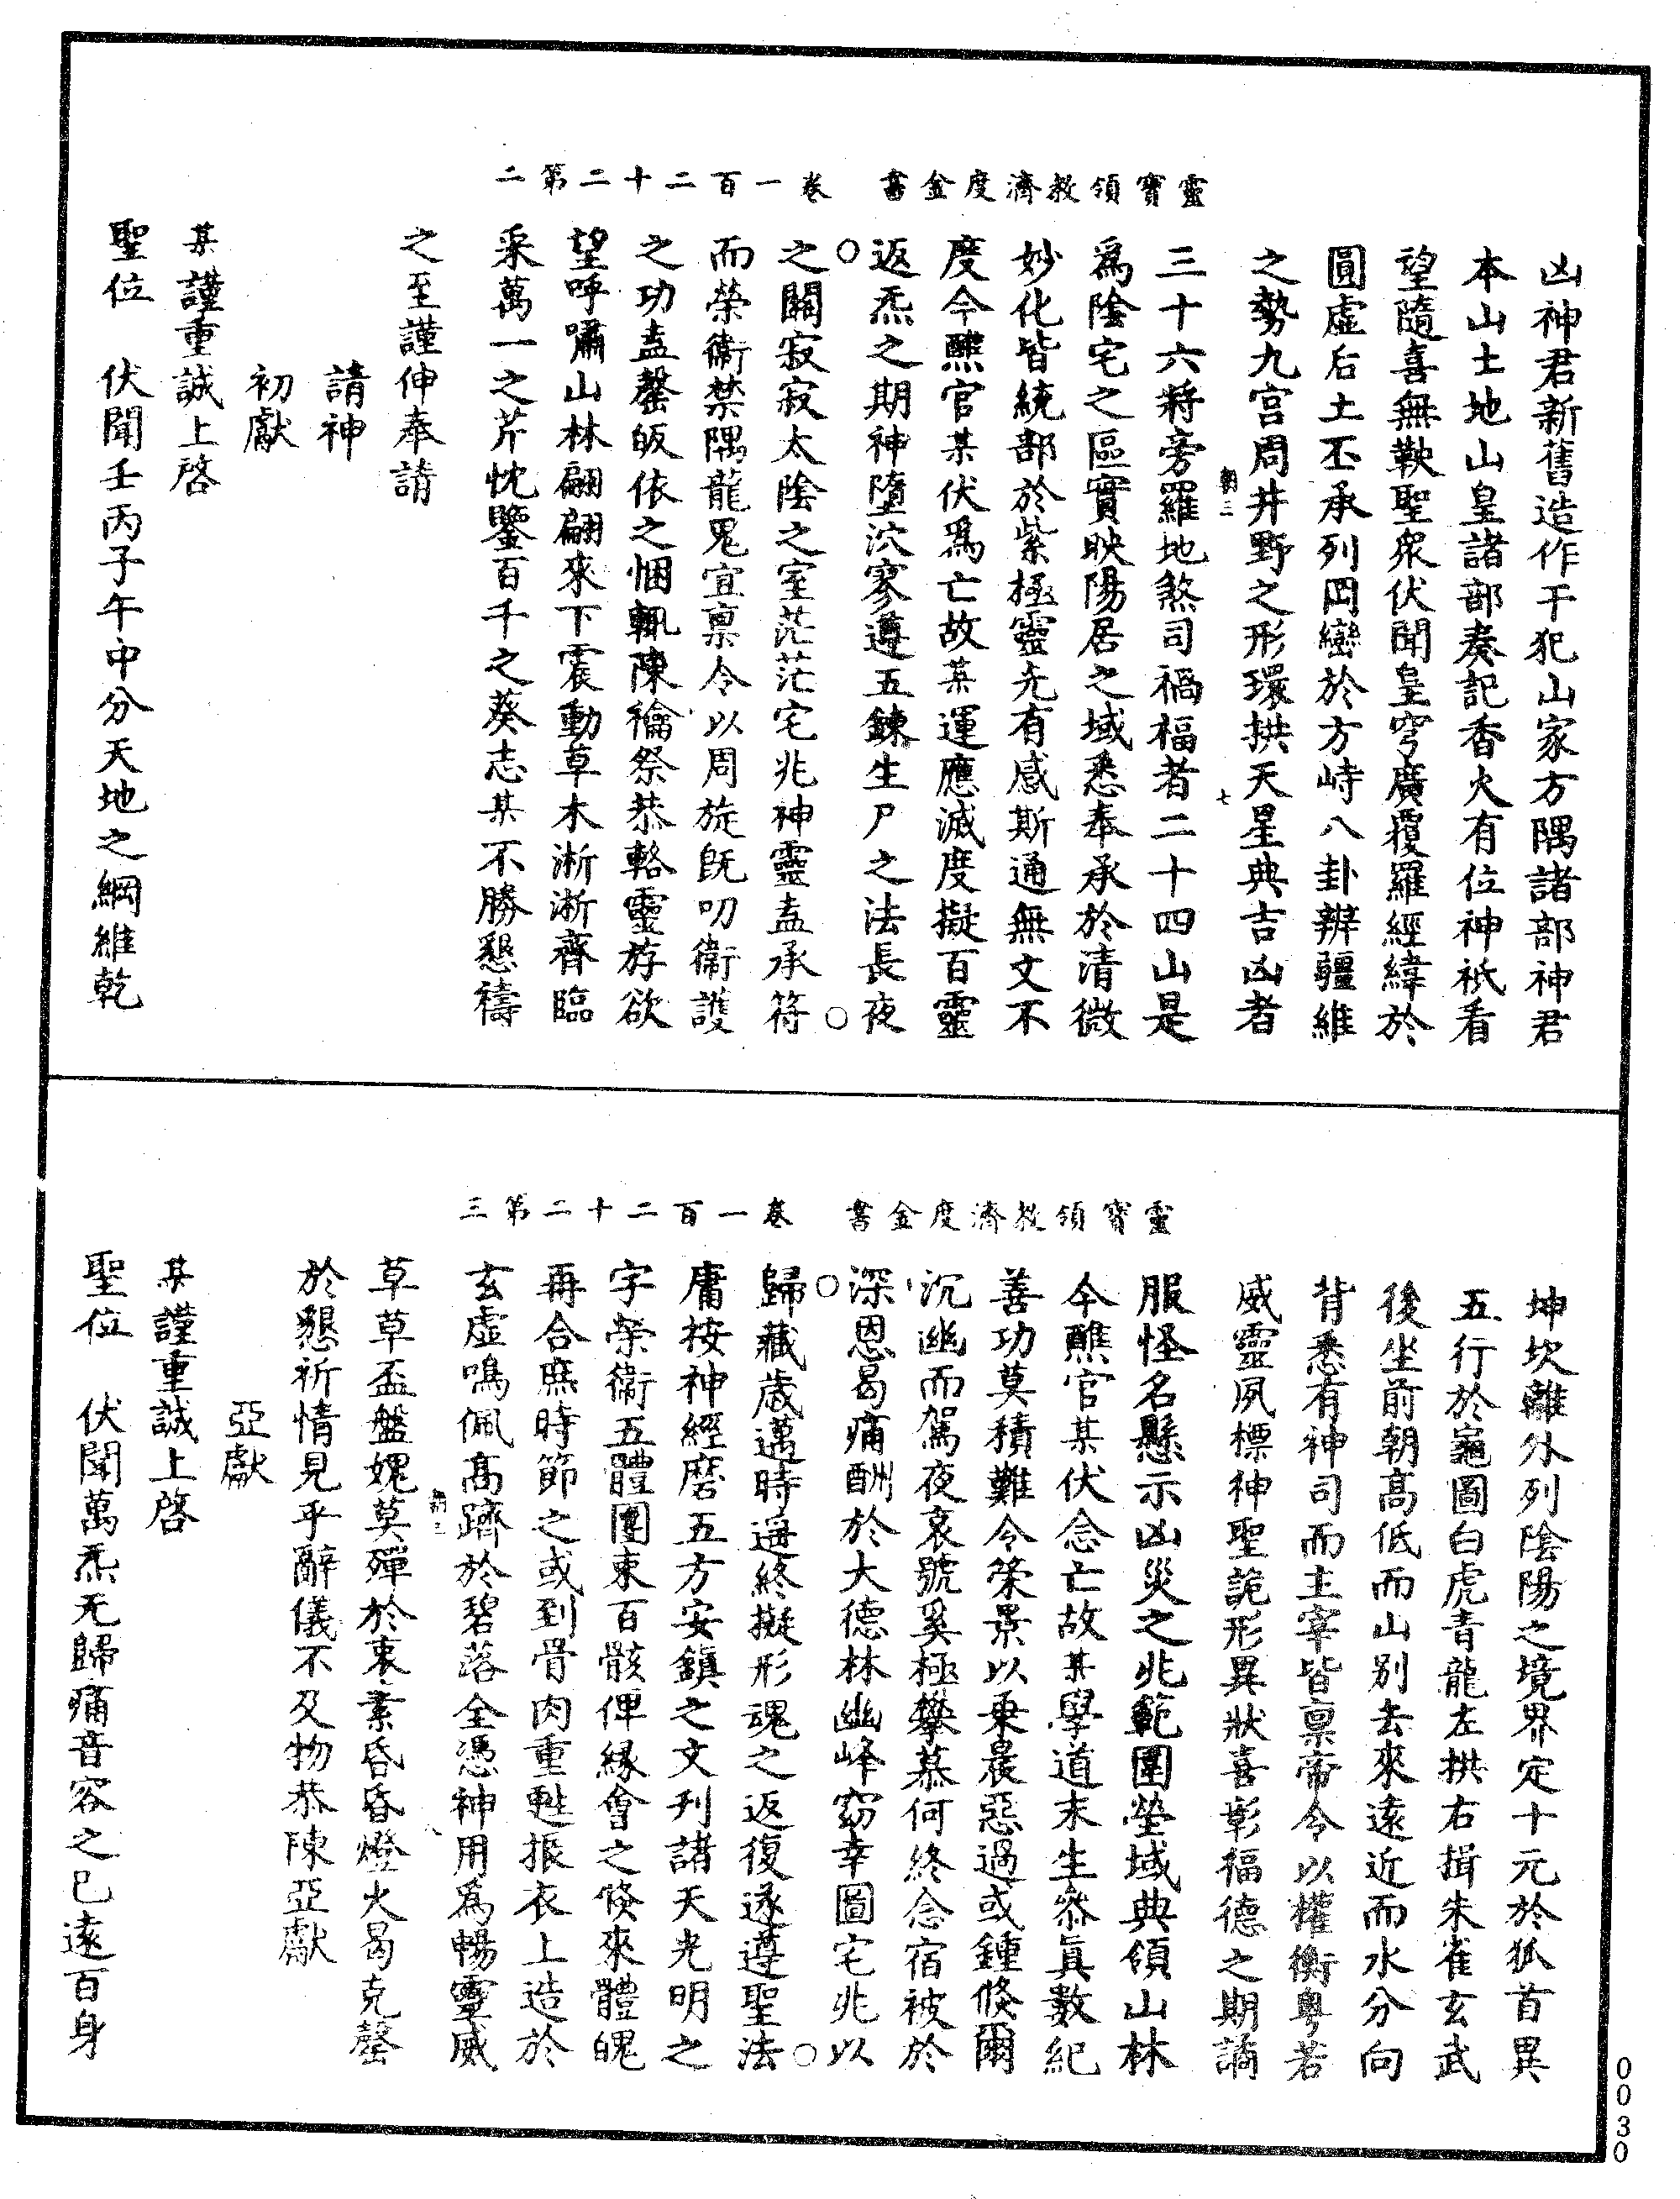 靈寶領教濟度金書　卷一百二十二第二
凶神君新舊造作干犯山家方隅諸部神君
本山土地山皇諸部奏記香火有位神祇看
望隨喜無鞅聖衆伏聞皇穹廣覆羅經緯於
圓虛后土丕承列岡巒於方峙八卦辨疆維
之勢九宮周井野之形環拱天星典吉凶者
三十六將旁羅地煞司禍福者二十四山是
爲陰宅之區實映陽居之域悉奉承於清微
妙化皆統部於紫極靈尤有感斯通無文不
度今醮官某伏爲亡故某運應滅度擬百靈
返炁之期神墮泬寥遵五鍊生尸之法長夜
之闕寂寂太陰之室茫茫宅兆神靈盍承符
而榮衛禁隅龍鬼宜稟令以周旋旣叨衛護
之功盍罄皈依之悃輒陳禴祭恭輅靈斿欲
望呼嘯山林翩翩來下震動草木淅淅齊臨
采萬一之芹忱鑒百千之葵志某不勝懇禱
之至謹伸奉請
請神
初獻
某謹重誠上啓
聖位　伏聞壬丙子午中分天地之綱維乾
靈寶領教濟度金書　卷一百二十二第三
坤坎離外列陰陽之境界定十元於狐首異
五行於龜圖白虎青龍左拱右揖朱雀玄武
後坐前朝高低而山別去來遠近而水分向
背悉有神司而主宰皆稟帝令以權衡粤若
威靈夙標神聖詭形異狀喜彰福德之期譎
服怪名懸示凶災之兆範圍塋域典領山林
今醮官某伏念亡故某學道末生叅眞數紀
善功莫積難令榮景以秉晨惡過或鍾倏爾
沉幽而駕夜哀號奚極攀慕何終念宿被於
深恩曷痛酬於大德林幽峰窈幸圖宅兆以
歸藏歲邁時遥終擬形魂之返復遂遵聖法
庸按神經磨五方安鎮之文刋諸天光明之
字榮衛五體團束百骸俾縁會之倏來體魄
再合庶時節之或到骨肉重甦振衣上造於
玄虛鳴佩高躋於碧落全憑神用爲暢靈威
草草盃盤媿莫殫於衷素昏昏燈火曷克罄
於懇祈情見乎辭儀不及物恭陳亞獻
亞獻
某謹重誠上啓
聖位　伏聞萬炁无歸痛音容之已遠百身
0030